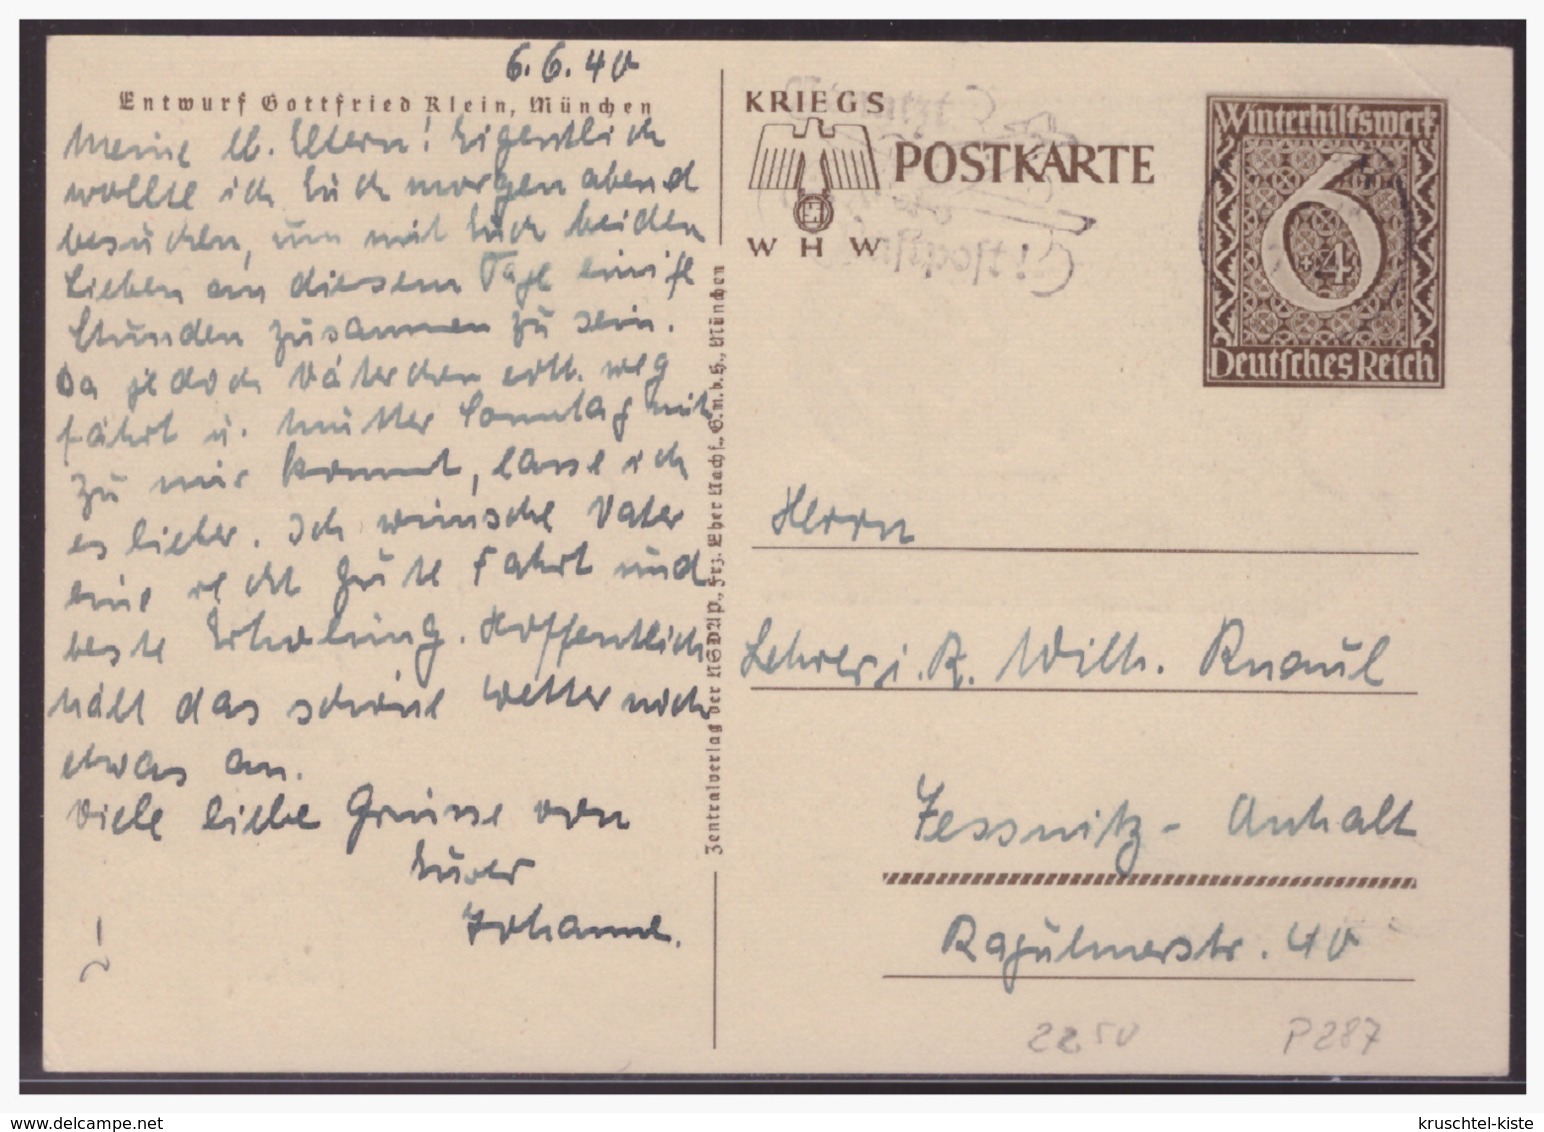 6.6.40
Entwurf Gottfried Klein, München
Meine lb. Eltern! Eigentlich
wollte ich Euch morgen abend
besuchen, um mit Euch beiden
Lieben an diesem Tage einige
Stunden zusammen zu sein.
Da jedoch Väterchen evtl. weg
fährt u. Mutter Sonntag mit
zu mir kommt, lasse ich
es lieber. Ich wünsche Vater
eine recht gute Fahrt und
beste Erholung. Hoffentlich
hält das schöne Wetter noch
etwas an.
Viele liebe Grüsse von
Eurer
Johanne.
2-
Zentralverlag der NSDAP., Frz. Eher Nachf., G.m.b.H., München
KRIEGS
POSTKARTE
W H W
Luftpost!
Winterhilfswerk
6
+4
Deutsches Reich
Herrn
Lehrer i. R. Wilh. Knaul
Jessnitz - Anhalt
Raguhnerstr. 40
22.50
P287
kruschtel-kiste